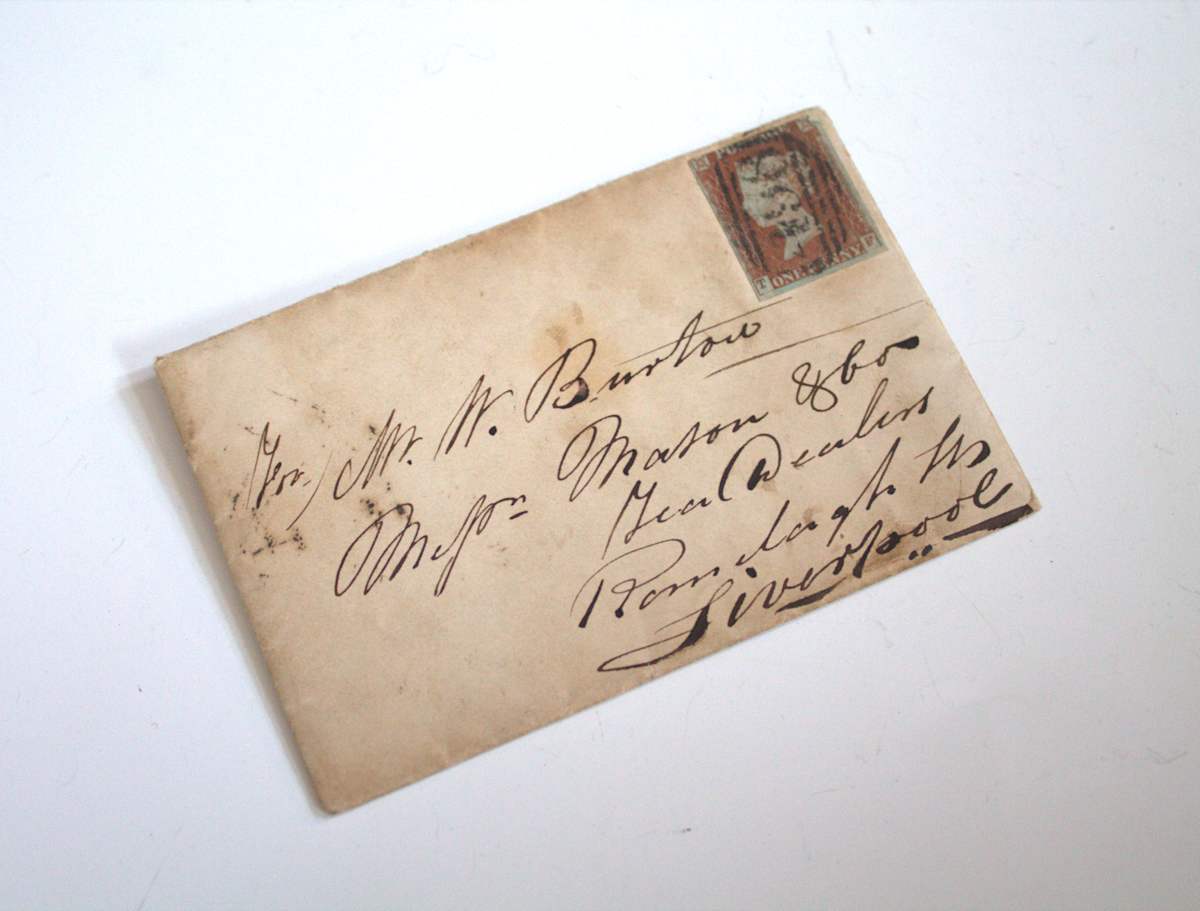 POSTAGE
T ONE PENNY F
(For) Mr. W. Burton
Messrs Mason & Co
Tea Dealers
Ranelagh St
Liverpool